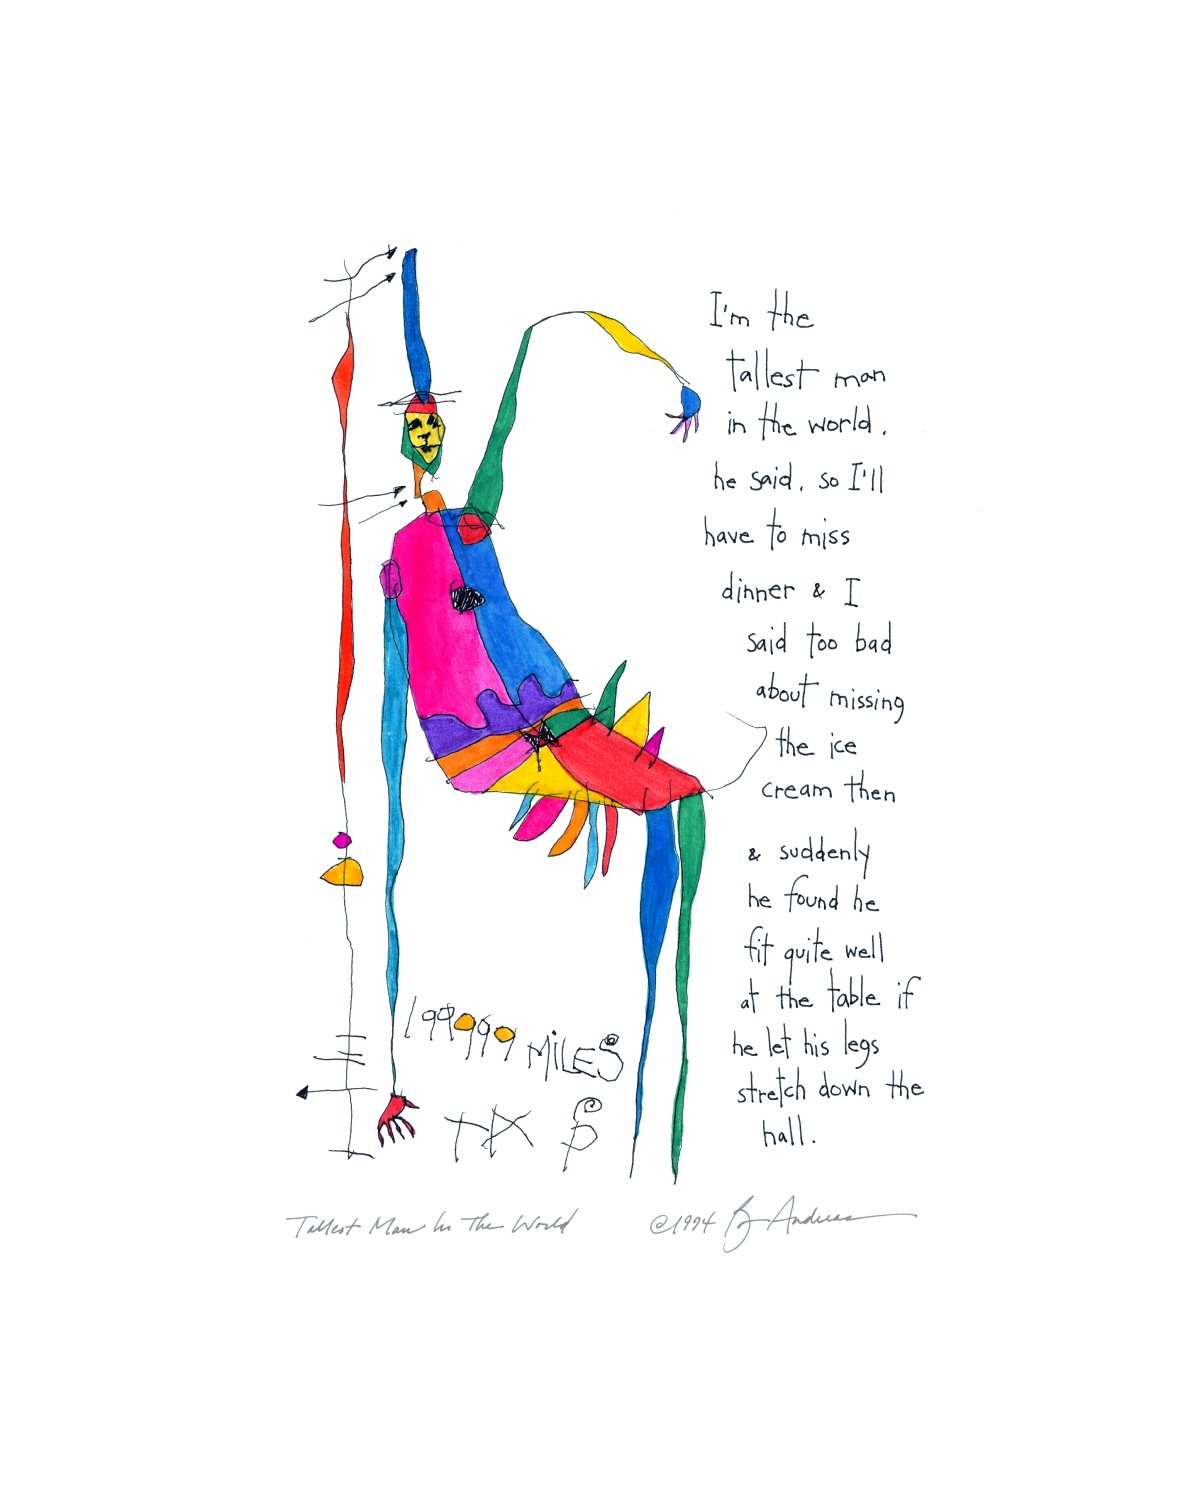 I'm the
tallest man
in the world,
he said, so I'll
have to miss
dinner & I
said too bad
about missing
the ice
cream then
& suddenly
he found he
fit quite well
at the table if
he let his legs
stretch down the
hall.
199999 MILES
Tallest Man In The World
©1994 B Andreas